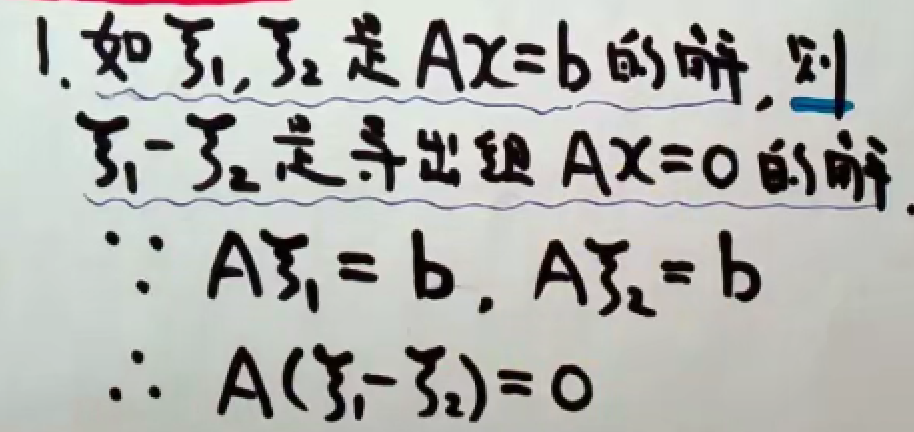 1. 如 ξ₁, ξ₂ 是 Ax=b 的解, 则
ξ₁-ξ₂ 是导出组 Ax=0 的解.
∵ Aξ₁=b, Aξ₂=b
∴ A(ξ₁-ξ₂)=0